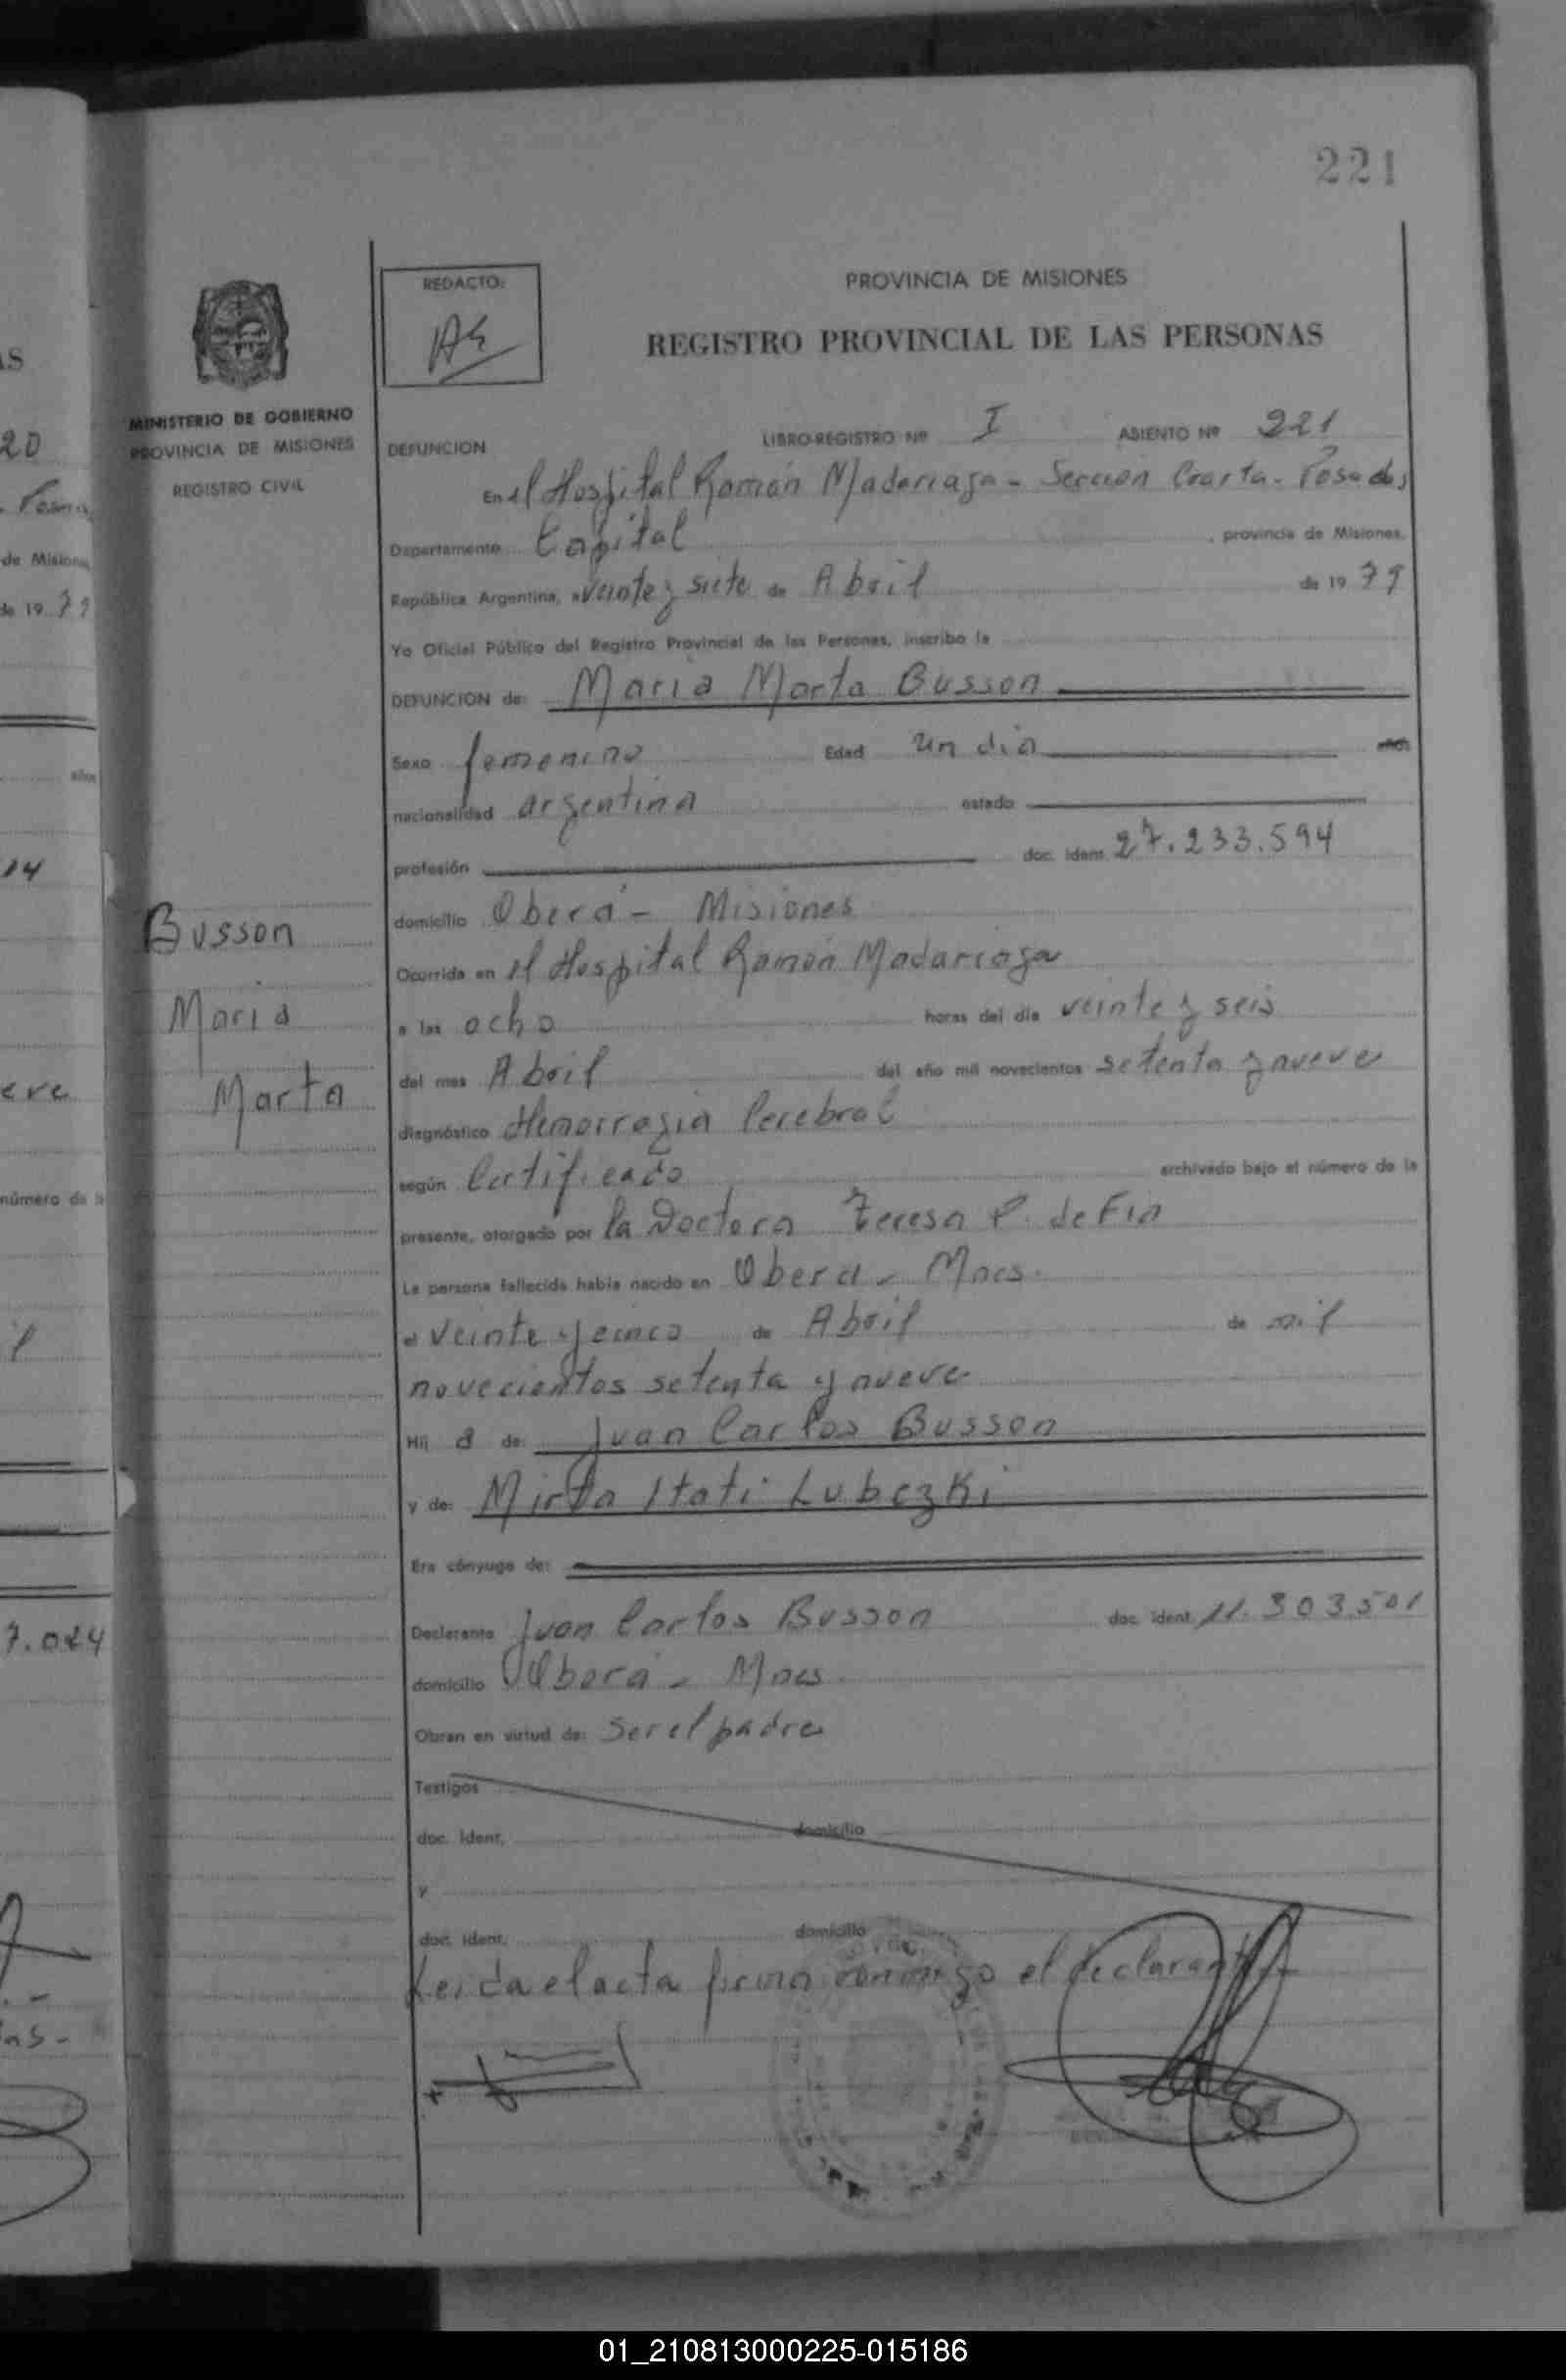 221
REDACTO:
PROVINCIA DE MISIONES
REGISTRO PROVINCIAL DE LAS PERSONAS
MINISTERIO DE GOBIERNO
PROVINCIA DE MISIONES
REGISTRO CIVIL
DEFUNCION LIBRO-REGISTRO Nº I ASIENTO Nº 221
En el Hospital Ramón Madariaga - Sección Cuarta - Posadas
Departamento Capital , provincia de Misiones.
República Argentina, a veinte y siete de Abril de 19 79
Yo Oficial Público del Registro Provincial de las Personas, inscribo la
DEFUNCION de: Maria Marta Busson
Sexo femenino Edad un dia años
nacionalidad argentina estado
profesión doc. ident. 27.233.594
domicilio Oberá - Misiones
Ocurrida en el Hospital Ramón Madariaga
a las ocho horas del día veinte y seis
del mes Abril del año mil novecientos setenta y nueve
diagnóstico Hemorragia Cerebral
según Certificado archivado bajo el número de la
presente, otorgado por la Doctora Teresa P. de Fia
La persona fallecida había nacido en Obera - Mnes.
el veinte y cinco de Abril de mil
novecientos setenta y nueve
Hij a de: Juan Carlos Busson
y de: Mirta Itati Lubczki
Era cónyuge de:
Declarante Juan Carlos Busson doc. ident. 11.303.501
domicilio Oberá - Mnes.
Obran en virtud de: ser el padre
Testigos
doc. ident. domicilio
y
doc. ident. domicilio
Leida el acta firma conmigo el declarante
Busson
Maria
Marta
AS
20
de Misiones
de 19 79
años
14
eve
número de la
il
7.024
01_210813000225-015186